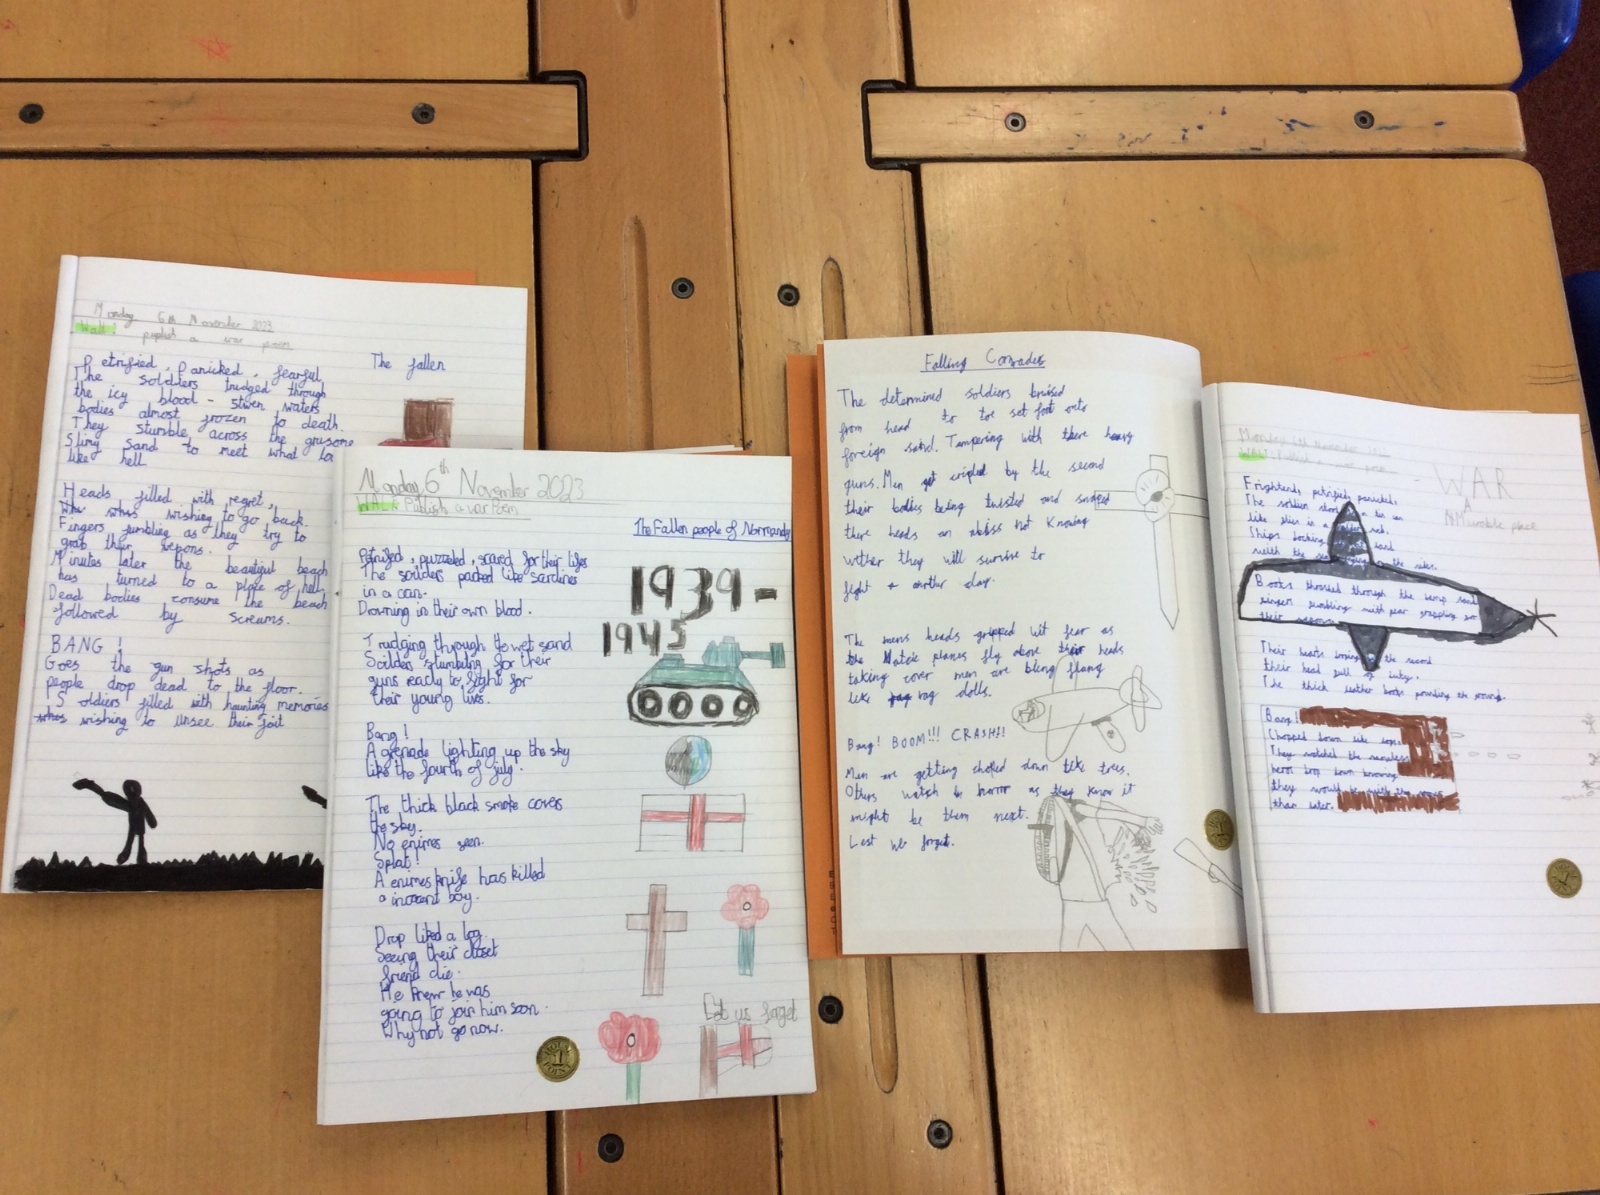 Monday 6th November 2023
WALT: publish a war poem
The fallen
Petrified, panicked, fearful
The soldiers trudged through
the icy blood-strwen waters
bodies almost frozen to death.
They stumble across the grusome
Slimy sand to meet what
like hell
Heads filled with regret,
wishing to go back.
Fingers fumbling as they try to
grab their wepons.
Minutes later the beautiful beach
has turned to a place of hell.
Dead bodies consume the beach
followed by screams.
BANG!
Goes the gun shots as
people drop dead to the floor.
Soldiers filled with haunting memories
wishing to unsee their
Monday 6th November 2023
WALT: Publish a war poem
The Fallen people of Normandy
Petrified, puzzeled, scared for their lifes
The soilders packed like sardines
in a can.
Drowning in their own blood.
1939-
1945
Trudging through the wet sand
Soilders stumbling for their
guns ready to fight for
their young lives.
Bang!
A grenade lighting up the sky
like the fourth of july.
The thick black smoke covers
the sky.
No enimes seen.
Splat!
A enimes knife has killed
a inocent boy.
Drop liked a log.
Seeing their closet
friend die.
He knew he was
going to join him soon.
Why not go now.
Let us forget
Falling Comrades
The determined soldiers bruised
from head to toe set foot onto
foreign sand. Tampering with there heavy
guns. Men get cripled by the second
their bodies being twisted and
there heads an abiss not Knowing
wether they will survive to
fight another day.
The mens heads gripped wit fear as
the planes fly above their heads
taking cover men are being flung
like rag dolls.
Bang! BOOM!!! CRASH!!
Men are getting down like trees.
Others watch in horror as they know it
might be them next.
Lest we forget.
Monday 6th November
WALT: Publish a war poem
WAR
A
place
Frightend, petrified, panicked.
The soldiers stood
like in a
Ships
with the
Boots through the damp sand
fingers fumbling with fear grappling
their
Their hearts the second
their head full
The thick leather boots pounding the ground.
Bang!
Chopped down like
They watched the
heros drop down knowing
they would be
than later.